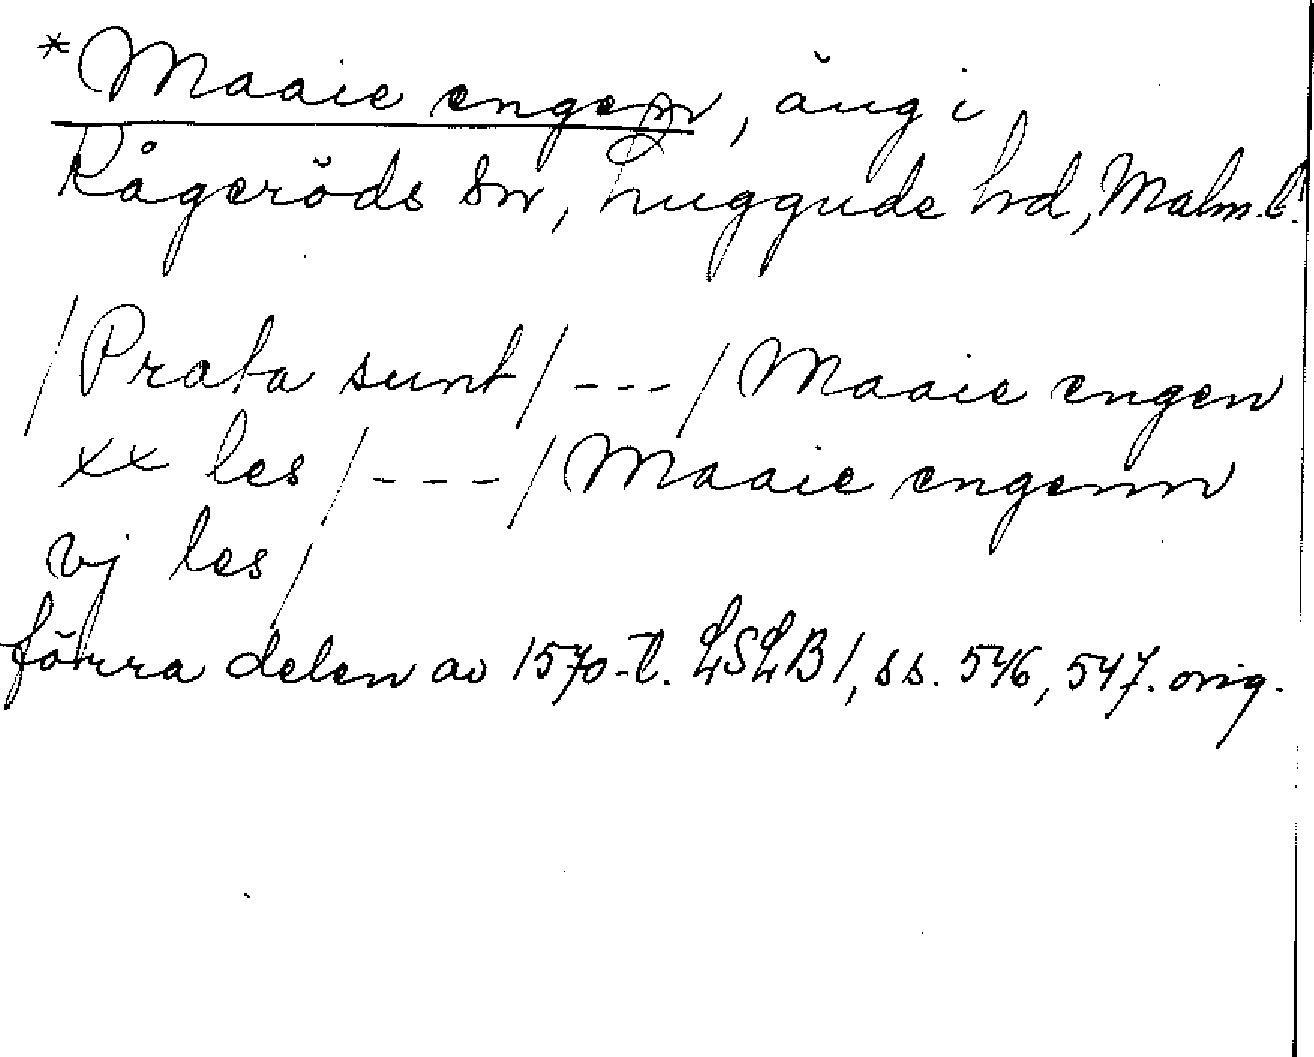 *Maaie engen, äng i
Rågeröds sn, Luggude hd, Malm.l.
/Prata sunt/---/Maaie engen
xx les/---/Maaie engenn
vj les/
förra delen av 1570-t. LSLB1, ss. 546, 547. orig.